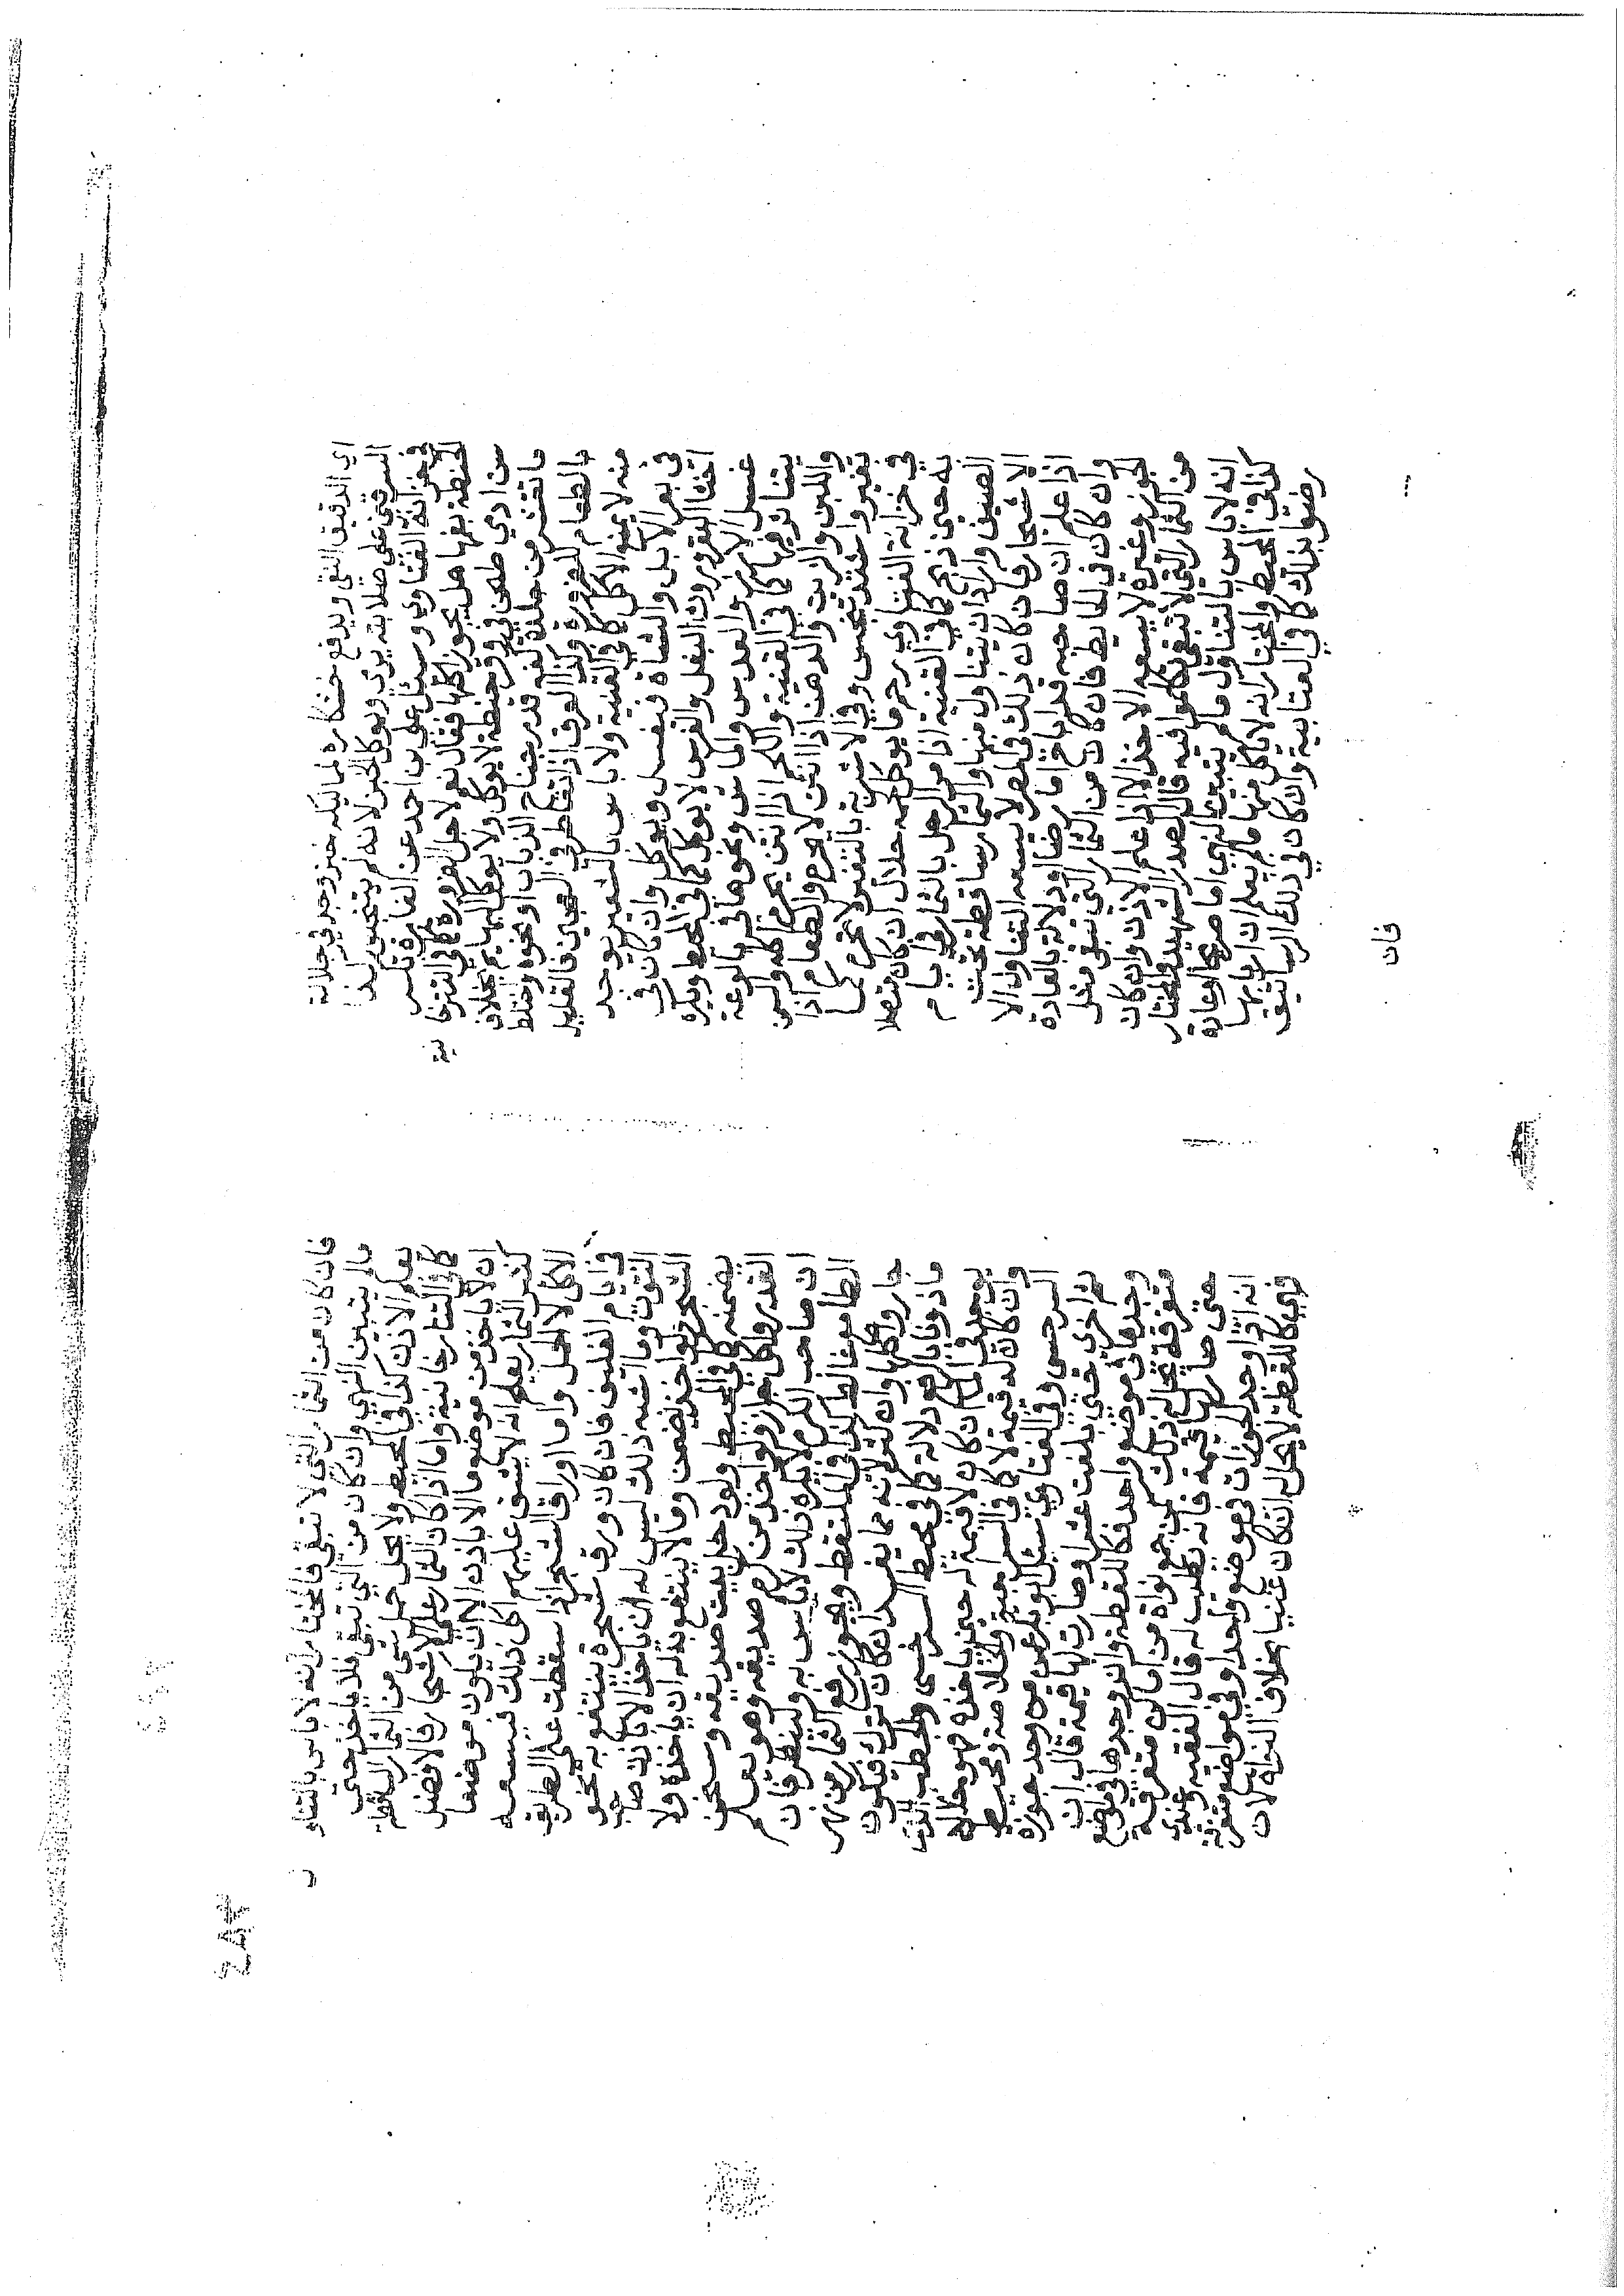 اي الدقيق النقي ويدفع خشكاره لمماليكه خبز وجد في خلاله
السرقين على صلابته يرمي ويوكل الخبز لانه لم يتنجس كذا
في خزانة الفتاوي وسئل علي بن احمد عن الفارة تكسر
الحنطة بفمها هل يجوز اكلها فقال نعم لاجل الضرورة كما في التترخا
نية
سن ادمي طحن في وقر حنطة لا يوكل ولا يوكل البهايم بخلاف
ما تقشر من جلدة كفه قدر جناح الذباب او نحوه واختلط
بالطعام للضرورة وكذا العرق اذا تقاطر في العجين فالقليل
منه لا يمنع الاكل كما في القنية ولا باس بالشعير يوجد
في بعر الابل والشاة فيغسل ويوكل وان كان في
اخثا البقر وروث البغل والفرس لا يوكل كما في المحيط ويكره
غسل الارز والعدس والماش ونحوها في بالوعة
يتناثر فيها كما في القنية واللحم اذا انتن يحرم اكله والسمن
واللبن والزيت والدهن اذا انتن لا يحرم والطعام اذا
تغير واشتد تنجس وفي الاشربة بالتغير لا تحرم كما
في خزانة الفتاوي رحم ما يوكل لحمه حلال ان كان متصلا
به حين ذبح كما في القنية اذا مر الرجل بالثمار في ايام
الصيف واراد ان يتناول منها والثمار ساقطة تحت
الاشجار فان كان ذلك في المصر لا يسعه التناول الا
اذا علم ان صاحبه قد اباح اما نصا او دلالة بالعادة
وان كان في الحايط فان كان من الثمار التي تبقى مثل
الجوز وغيره لا يسعه الاخذ الا اذا علم الاذن وان كان
من الثمار التي لا تبقى تكلموا فيه قال الصدر الشهيد والمختار
انه لا باس بالتناول ما لم يتبين النهي اما صريحا او عادة
كذا في المحيط والمختار انه لا ياكل منها ما لم يعلم ان اربابها
رضوا بذلك كما في العتابية وان كان في ذلك الرساتيق
فان
فان كان من الثمار التي لا تبقى فالمختار انه لا باس بالتناو
ل
مالم يتبين النهي وان كان من التي تبقى فلا ياخذ حتى
يعلم الاذن كذا في المحيط ولا يحل حمل شي من الثمار الساقطة
كما في التتارخانية واما اذا كان الثمار على الاشجار فالافضل
ان لا ياخذ من موضع ما الا باذن الا ان يكون موضعا
كثير الثمار يعلم انه لا يشق عليهم اكل ذلك فيسعه
الاكل لا الحمل واما اوراق الشجر اذا سقطت على الطريق
في ايام الفليق فان كان ورق شجرة ينتفع به نحو
التوت وما اشبه ذلك ليس له ان ياخذ الا باذن صاحب
الشجر ولو اخذ يضمن وما لا ينتفع به له ان ياخذه ولا
يضمنه كما في المحيط ولو دخل بيت صديقه وسخن
القدر واكل جاز ولو اخذ من كرم صديقه وهو يعلم
ان صاحب الكرم لا يكره ذلك لا باس به ولينظر فان
الطامع غالط كذا في الملتقط ويجوز رفع الثمار من نهر
جار واكلها وان كثر لانه مما يفسد ان كان ترك فيكون
ماذونا بالرفع دلالة كما في محيط السرخسي والحطب الذي
يوجد في الماء ان كان لا قيمة له حين ياخذه فهو حلال
وان كان له قيمة لا كما في السراجية والخلاصة ومحيط
السرخسي وفي الفتاوي سئل ابو بكر عمن وجد جوزة
ثم اخرى حتى بلغت عشرا وصارت لها قيمة قال ان
وجدها في موضع واحد فكاللقطة وان وجدها في مواضع
متفرقة يحل له ذلك كمن جمع نواة من اماكن متفرقة
حتى صار لها قيمة فانه تطيب له قال الفقيه وعندي
انه اذا وجد الجوزات في موضع واحد او في مواضع متفرقة
فهي كاللقطة لا يحل ان كان غنيا بخلاف النواة لان